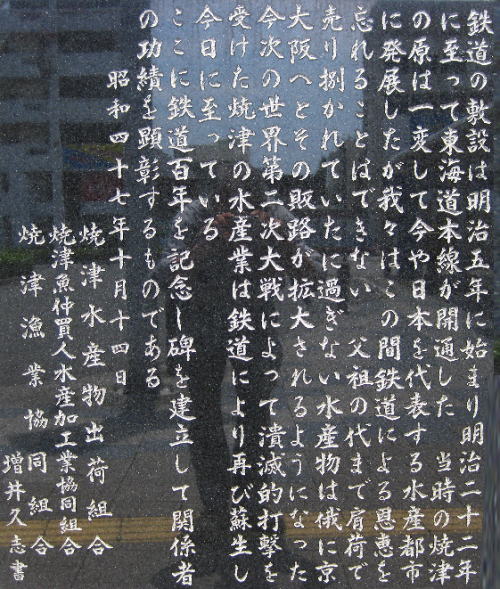 鉄道の敷設は明治五年に始まり明治二十二年
に至って東海道本線が開通した 当時の焼津
の原は一変して今や日本を代表する水産都市
に発展したが我々はこの間鉄道による恩恵を
忘れることはできない 父祖の代まで肩荷で
売り捌かれていたに過ぎない水産物は俄に京
大阪へとその販路が拡大されるようになった
今次の世界第二次大戦によって潰滅的打撃を
受けた焼津の水産業は鉄道により再び蘇生し
今日に至っている
ここに鉄道百年を記念し碑を建立して関係者
の功績を顕彰するものである
昭和四十七年十月十四日
焼津水産物出荷組合
焼津魚仲買人水産加工業協同組合
焼津漁業協同組合
増井久志書